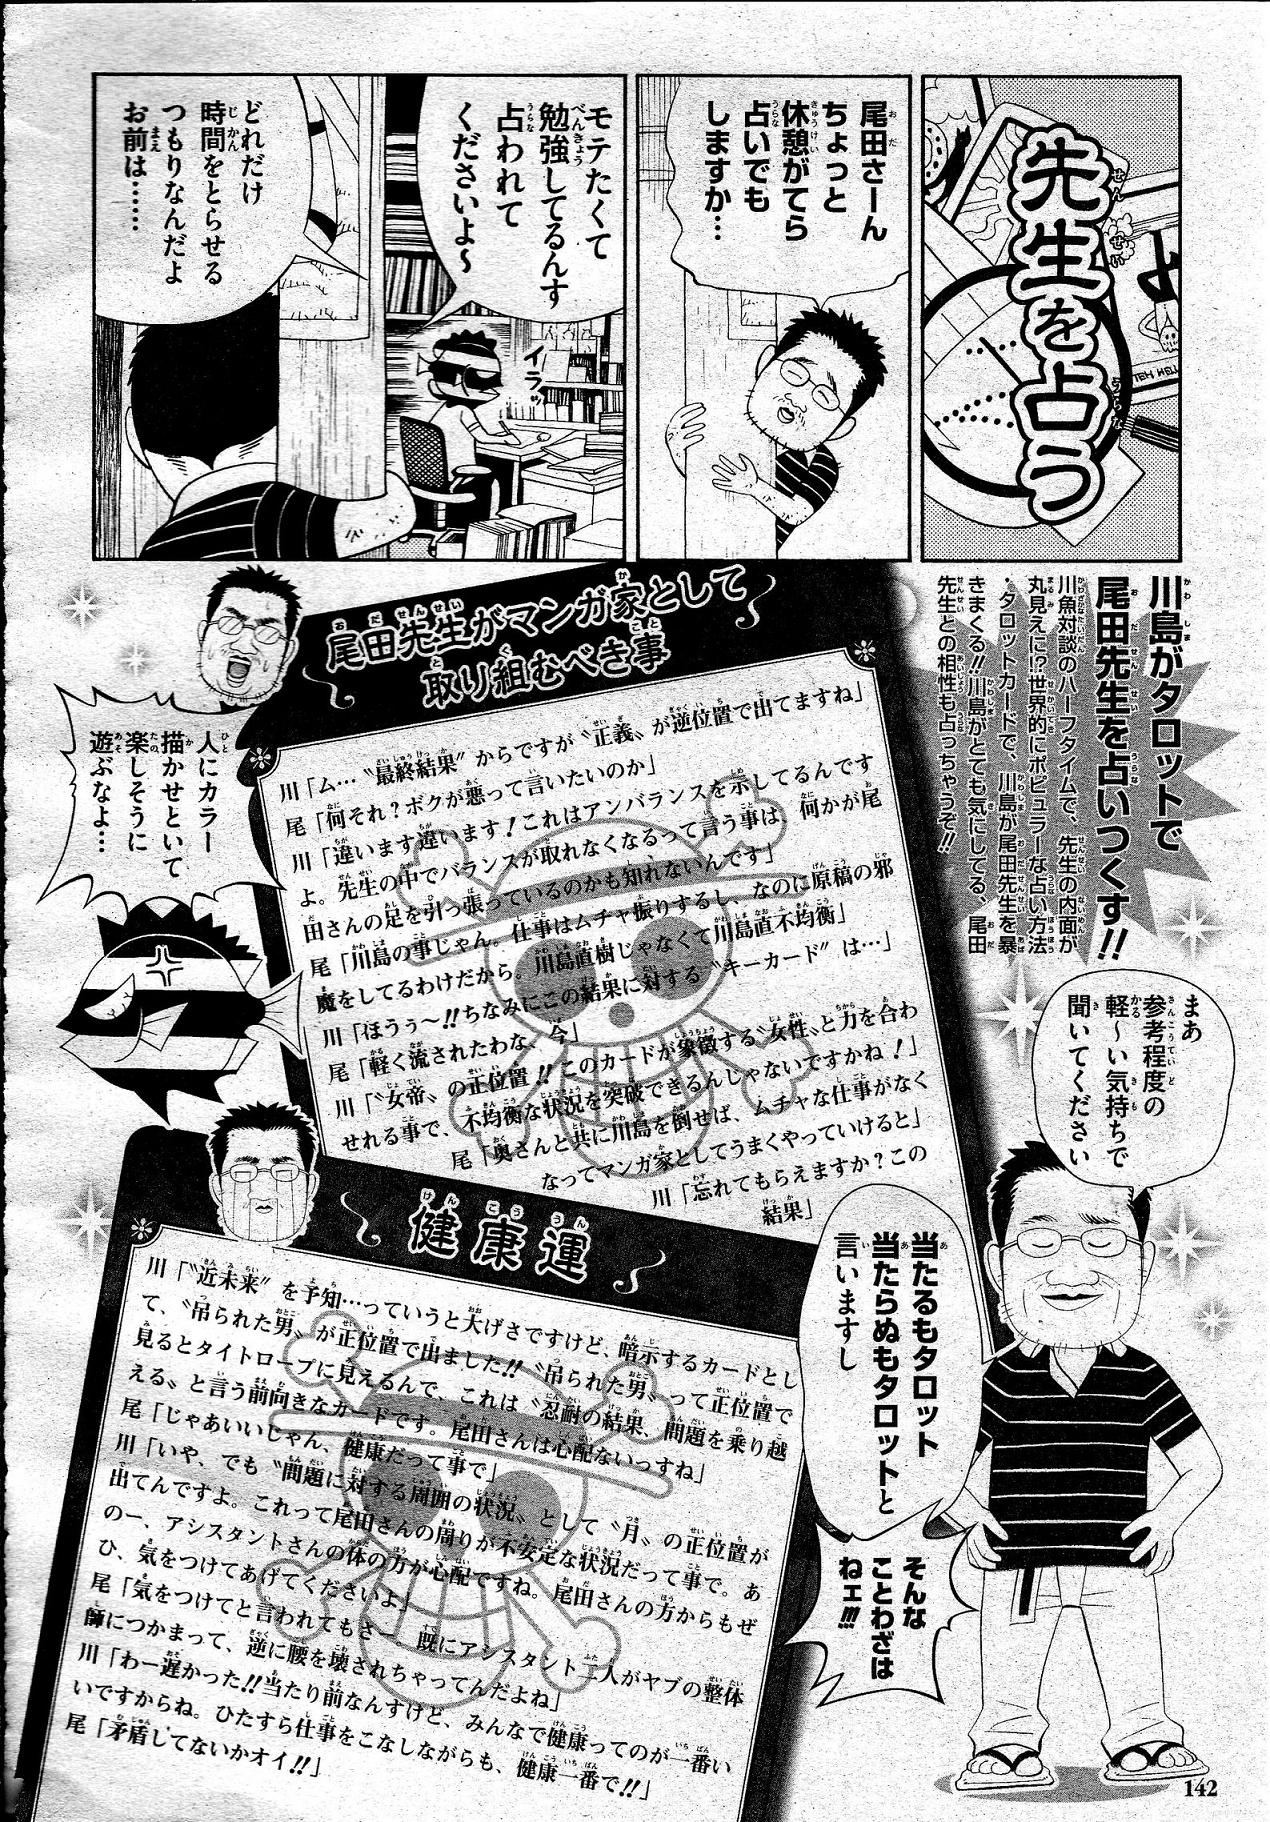 先生を占う
尾田さーん
ちょっと
休憩がてら
占いでも
しますか…
モテたくて
勉強してるんす
占われて
くださいよ～
イラッ
どれだけ
時間をとらせる
つもりなんだよ
お前は……
川島がタロットで
尾田先生を占いつくす!!
川魚対談のハーフタイムで、先生の内面が
丸見えに!?世界的にポピュラーな占い方法
・タロットカードで、川島が尾田先生を暴
きまくる!!川島がとても気にしてる、尾田
先生との相性も占っちゃうぞ!!
まあ
参考程度の
軽～い気持ちで
聞いてください
当たるもタロット
当たらぬもタロットと
言いますし
そんな
ことわざは
ねェ!!!
尾田先生がマンガ家として
取り組むべき事
川「ム…〝最終結果〟からですが〝正義〟が逆位置で出てますね」
尾「何それ?ボクが悪って言いたいのか」
川「違います違います!これはアンバランスを示してるんです
よ。先生の中でバランスが取れなくなるって言う事は、何かが尾
田さんの足を引っ張っているのかも知れないんです」
尾「川島の事じゃん。仕事はムチャ振りするし、なのに原稿の邪
魔をしてるわけだから。川島直樹じゃなくて川島直不均衡」
川「ほうぅ～!!ちなみにこの結果に対する〝キーカード〟は…」
尾「軽く流されたわな、今」
川「〝女帝〟の正位置!!このカードが象徴する〝女性〟と力を合わ
せれる事で、不均衡な状況を突破できるんじゃないですかね!」
尾「奥さんと共に川島を倒せば、ムチャな仕事がなく
なってマンガ家としてうまくやっていけると」
川「忘れてもらえますか?この
結果」
人にカラー
描かせといて
楽しそうに
遊ぶなよ…
健康運
川「〝近未来〟を予知…っていうと大げさですけど、暗示するカードとし
て、〝吊られた男〟が正位置で出ました!!〝吊られた男〟って正位置で
見るとタイトロープに見えるんで、これは〝忍耐の結果、問題を乗り越
える〟と言う前向きなカードです。尾田さんは心配ないっすね」
尾「じゃあいいじゃん、健康だって事で」
川「いや、でも〝問題に対する周囲の状況〟として〝月〟の正位置が
出てんですよ。これって尾田さんの周りが不安定な状況だって事で。あ
のー、アシスタントさんの体の方が心配ですね。尾田さんの方からもぜ
ひ、気をつけてあげてくださいよ」
尾「気をつけてと言われてもさー。既にアシスタント二人がヤブの整体
師につかまって、逆に腰を壊されちゃってんだよね」
川「わー遅かった!!当たり前なんすけど、みんなで健康ってのが一番い
いですからね。ひたすら仕事をこなしながらも、健康一番で!!」
尾「矛盾してないかオイ!!」
142